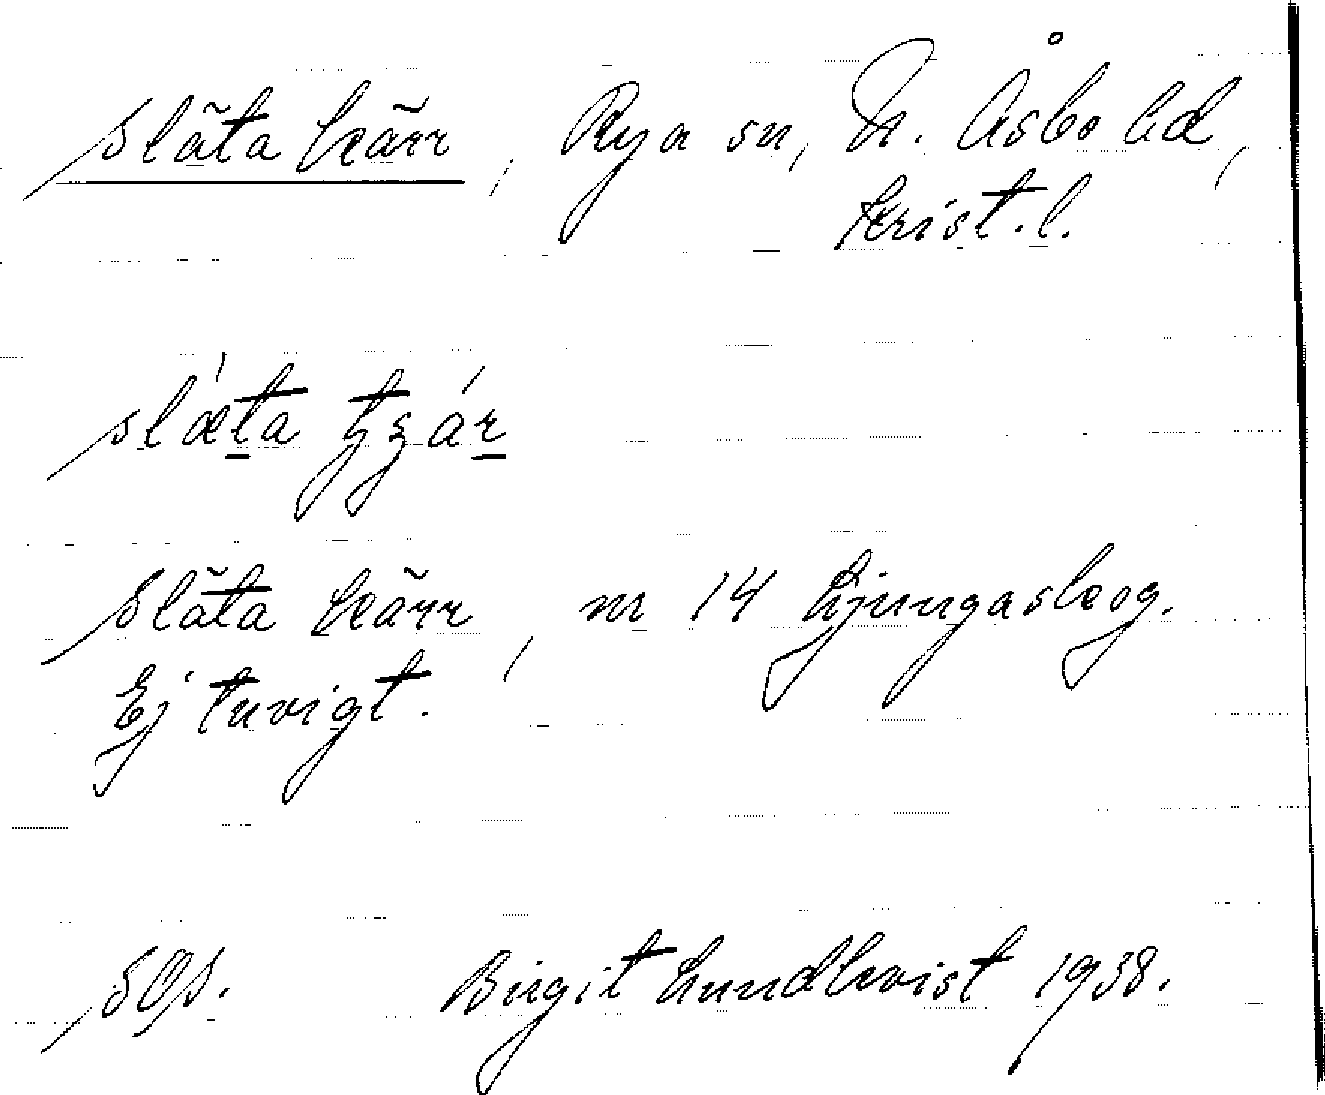 släta kärr, Rya sn, N. Åsbo hd,
krist. l.
slæta
Släta kärr, nr 14 Ljungaskog.
Ej tuvigt.
Birgit Lundkvist 1938.